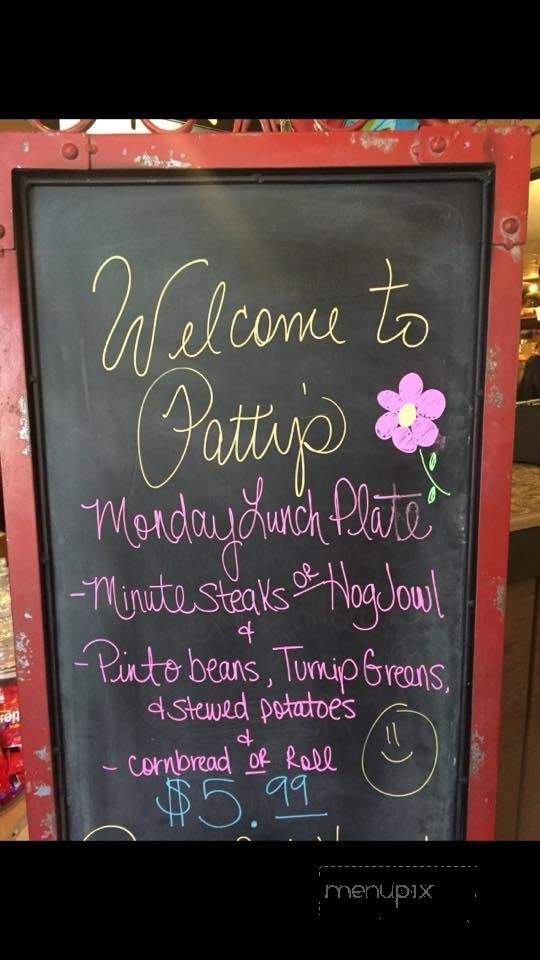 Welcome to
Patty's
Monday Lunch Plate
-Minute steaks OR Hog Jowl
&
-Pinto beans, Turnip Greens,
& Stewed potatoes
&
- cornbread OR Roll
$5.99
menupix